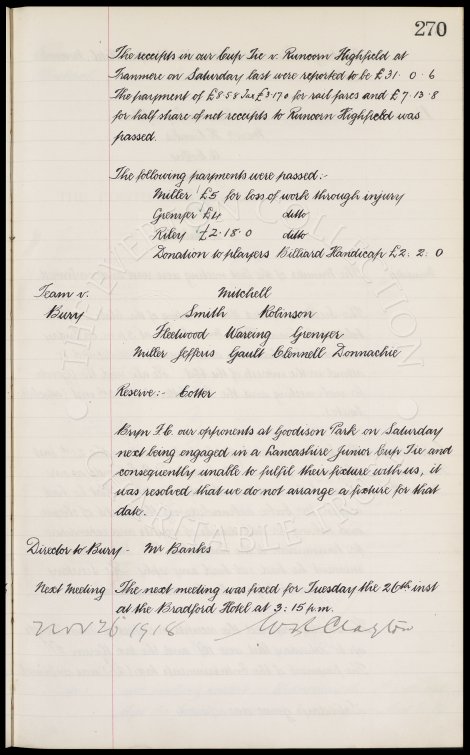 270
The receipts in our Cup Tie v. Runcorn Highfield at
Tranmere on Saturday last were reported to be £31. 0. 6
The payment of £8.5.8 Tax £3.17.0 for rail fares and £7.13.8
for half share of net receipts to Runcorn Highfield was
passed.
The following payments were passed:-
Miller £5 for loss of work through injury
Grenyer £4 ditto
Riley £2.18.0 ditto
Donation to players Billiard Handicap £2: 2: 0
Team v. Mitchell
Bury Smith Robinson
Fleetwood Wareing Grenyer
Miller Jefferis Gault Clennell Donnachie
Reserve:- Cotter
Bryn F.C. our opponents at Goodison Park on Saturday
next being engaged in a Lancashire Junior Cup Tie and
consequently unable to fulfil their fixture with us, it
was resolved that we do not arrange a fixture for that
date.
Director to Bury - Mr Banks
Next Meeting The next meeting was fixed for Tuesday the 26th inst
at the Bradford Hotel at 3:15 p.m.
Nov 26 1918 W R Clayton
THE EVERTON COLLECTION
CHARITABLE TRUST